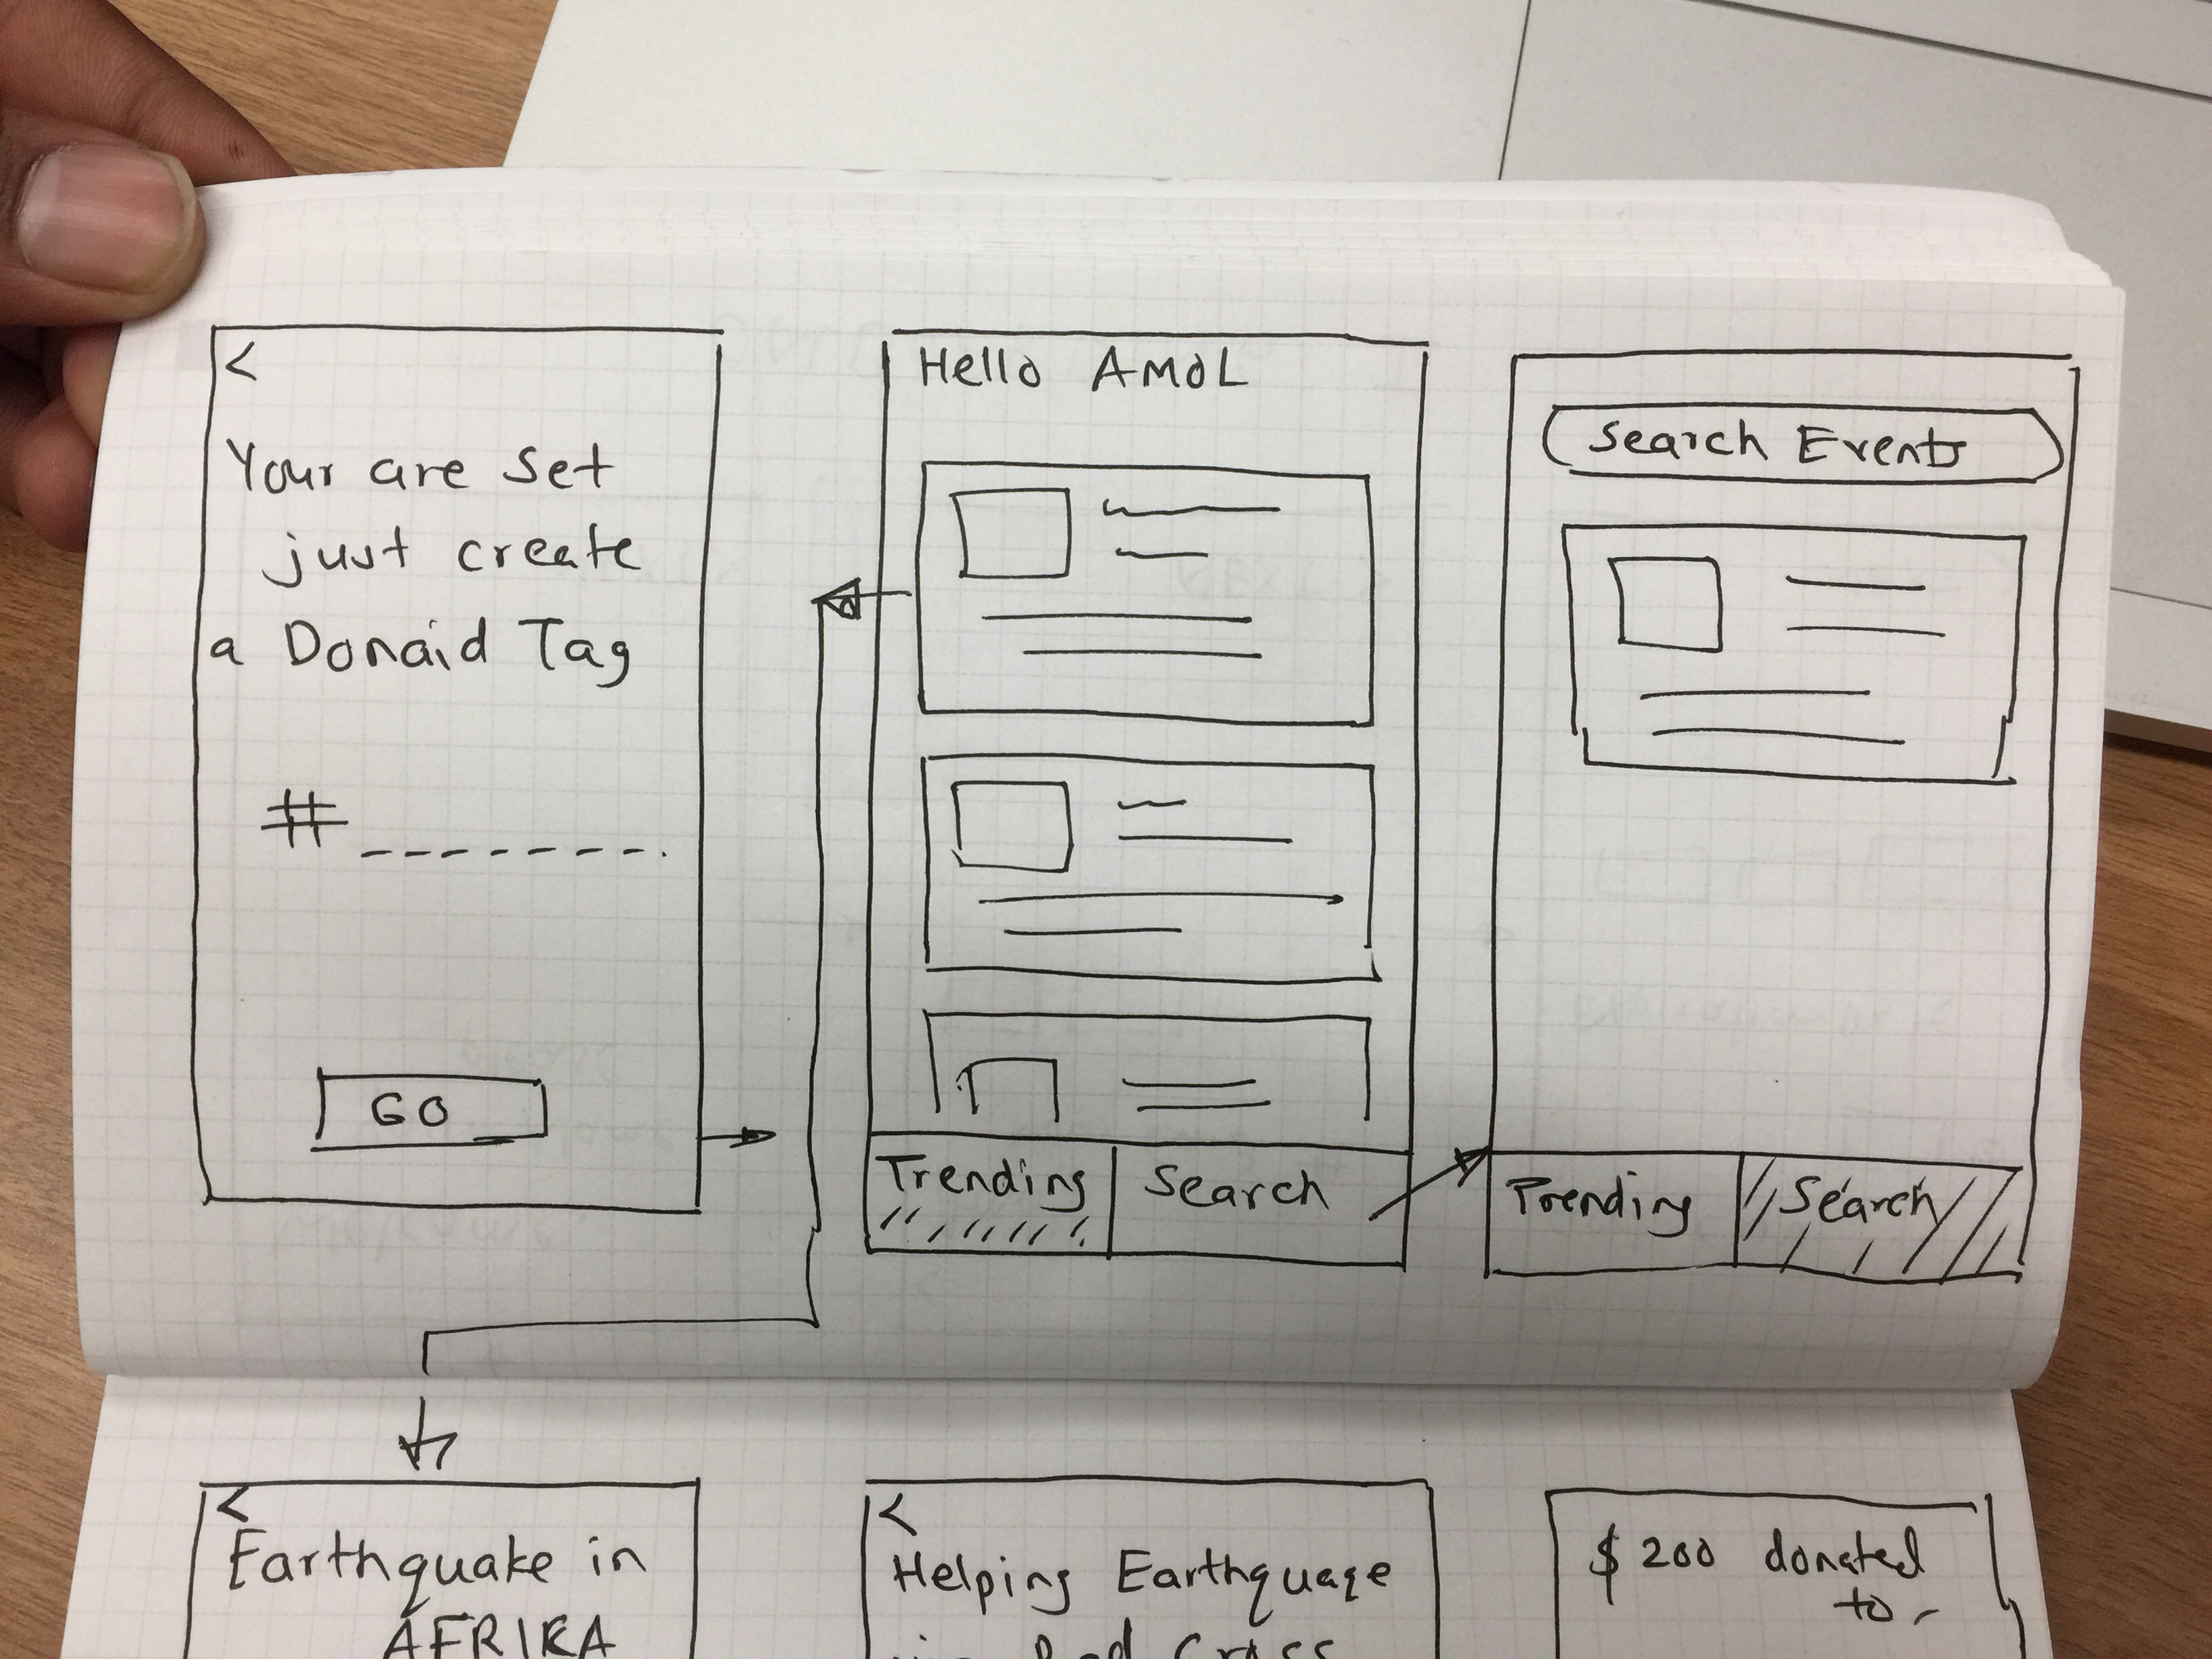 <
Your are set
just create
a Donaid Tag
# _ _ _ _ _ _ _ .
GO
Hello AMOL
Trending
Search
Search Events
Trending
Search
<
Earthquake in
AFRIKA
<
Helping Earthquage
via Red Cross
$ 200 donated
to